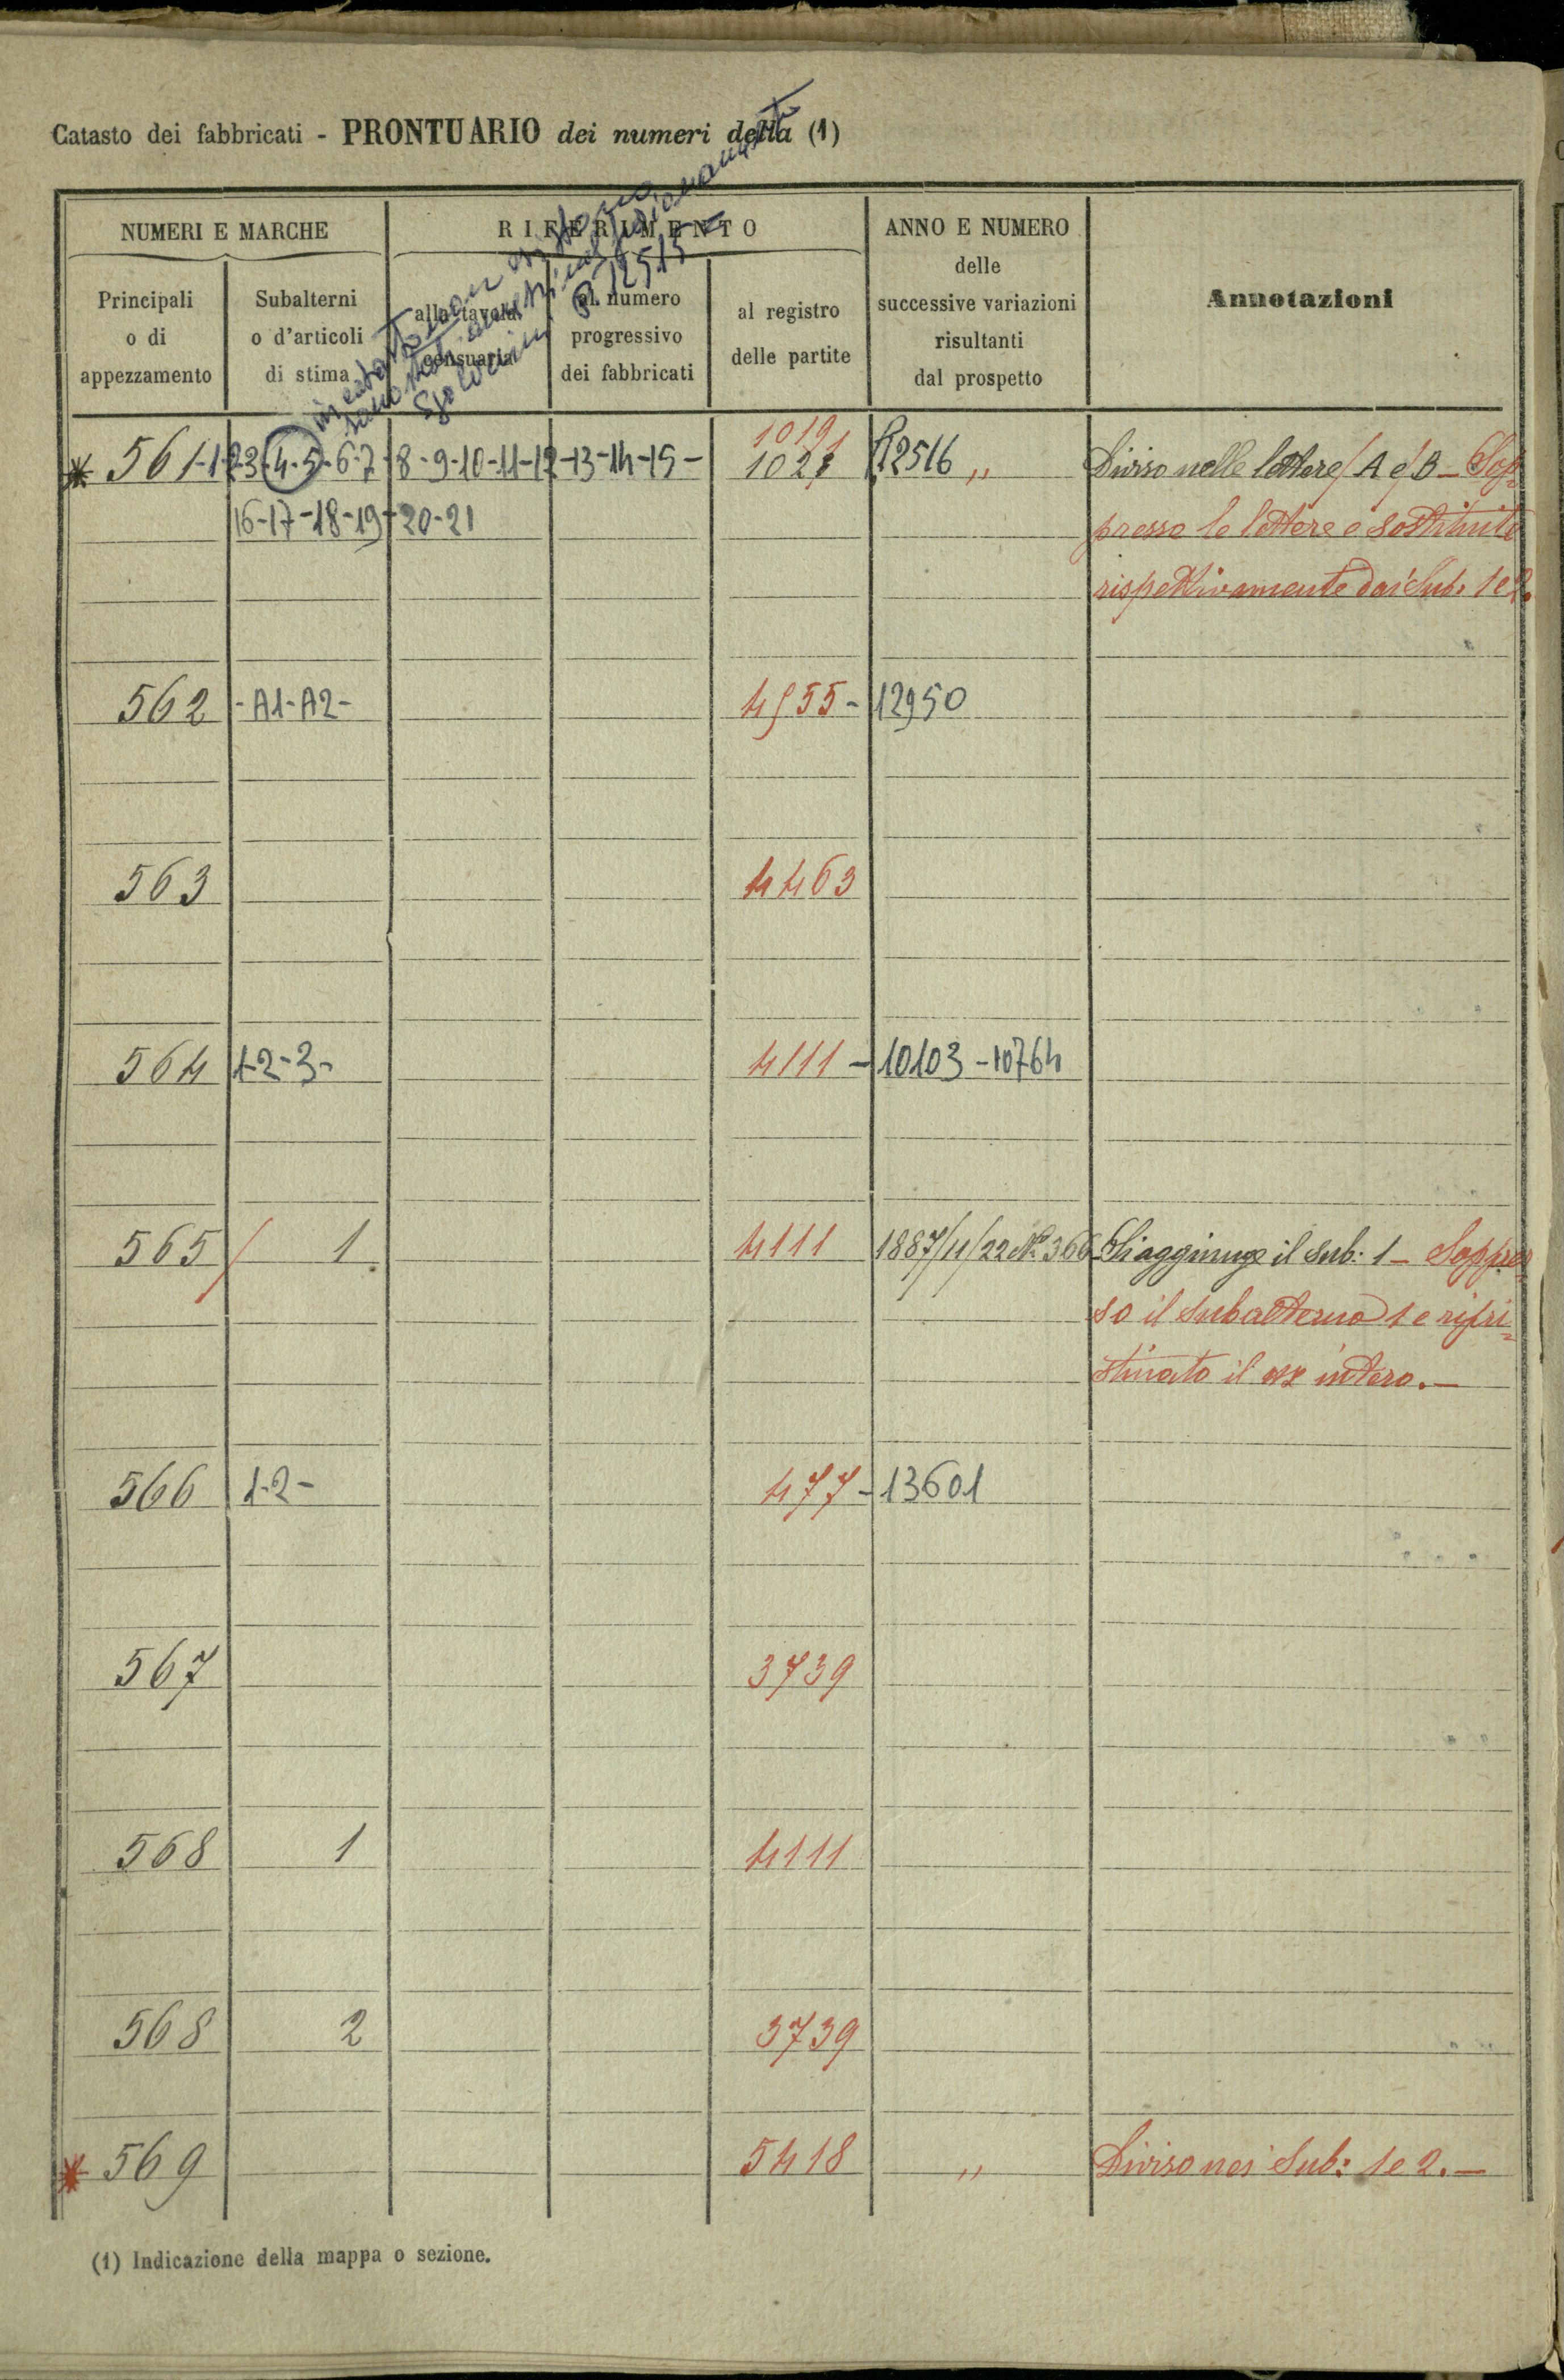 Catasto dei fabbricati - PRONTUARIO dei numeri della (1)
NUMERI E MARCHE
RIFERIMENTO
ANNO E NUMERO
delle
successive variazioni
risultanti
dal prospetto
Annotazioni
Principali
o di
appezzamento
Subalterni
o d'articoli
di stima
alla tavola
censuaria
al numero
progressivo
dei fabbricati
al registro
delle partite
P 12515
1019
561-1-2-3-4-5-6-7-8-9-10-11-12-13-14-15- 1021 12516 „ Diviso nelle lettere A e B - Sop=
16-17-18-19-20-21 presse le lettere e sostituite
rispettivamente dai Sub. 1 e 2.
562 -A1-A2- 4955- 12950
563 4463
564 1-2-3- 4111 - 10103 - 10764
565 1 4111 1887/11/22 N° 366 Si aggiunge il Sub: 1 - Soppres=
so il subalterno 1 e ripri=
stinato il n° intero. -
566 1-2- 477- 13601
567 3739
568 1 4111
568 2 3739
569 5418 „ Diviso nei Sub: 1 e 2. -
(1) Indicazione della mappa o sezione.